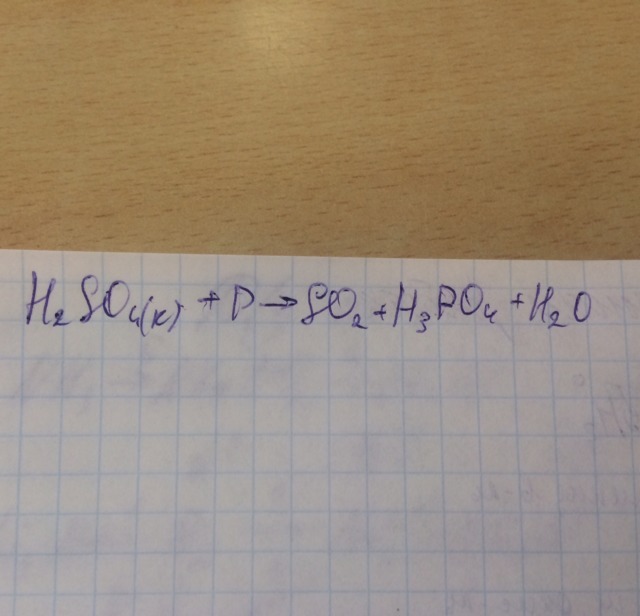 H₂SO₄(к) + P → SO₂ + H₃PO₄ + H₂O